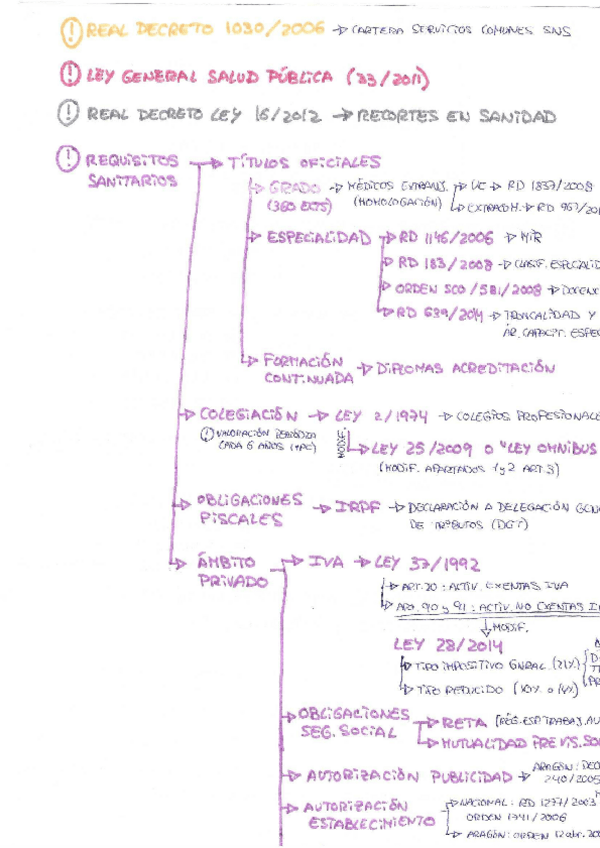 ! REAL DECRETO 1030/2006 → CARTERA SERVICIOS COMUNES SNS
! LEY GENERAL SALUD PÚBLICA (33/2011)
! REAL DECRETO LEY 16/2012 → RECORTES EN SANIDAD
! REQUISITOS SANITARIOS → TÍTULOS OFICIALES
→ GRADO (360 ECTS) → MÉDICOS EXTRANJ. (HOMOLOGACIÓN) → UE → RD 1837/2008
→ EXTRACOM. → RD 967/201
→ ESPECIALIDAD → RD 1146/2006 → MIR
→ RD 183/2008 → CLASIF. ESPECIALID
→ ORDEN SCO/581/2008 → DOCENC
→ RD 639/2014 → TRONCALIDAD Y
ÁR. CAPACIT. ESPEC
→ FORMACIÓN CONTINUADA → DIPLOMAS ACREDITACIÓN
→ COLEGIACIÓN → LEY 2/1974 → COLEGIOS PROFESIONALE
! VALORACIÓN PERIÓDICA
CADA 6 AÑOS (VPC)
MODIF.
→ LEY 25/2009 O "LEY OMNIBUS
(MODIF. APARTADOS 1 y 2 ART. 3)
→ OBLIGACIONES FISCALES → IRPF → DECLARACIÓN A DELEGACIÓN GENE
DE TRIBUTOS (DGT)
→ ÁMBITO PRIVADO → IVA → LEY 37/1992
→ ART. 20 : ACTIV. EXENTAS IVA
→ 90 y 91 : ACTIV. NO EXENTAS I
↓ MODIF.
LEY 28/2014
→ TIPO IMPOSITIVO GNRAL. (21%)
→ TIPO REDUCIDO (10% o 4%)
→ OBLIGACIONES SEG. SOCIAL → RETA (RÉG. ESP. TRABAJ. AU
→ MUTUALIDAD PREVIS. SO
→ AUTORIZACIÓN PUBLICIDAD → ARAGÓN : DEC
240/2005
→ AUTORIZACIÓN ESTABLECIMIENTO → NACIONAL : RD 1277/2003
ORDEN 1741/2006
→ ARAGÓN : ORDEN 12 abr. 200